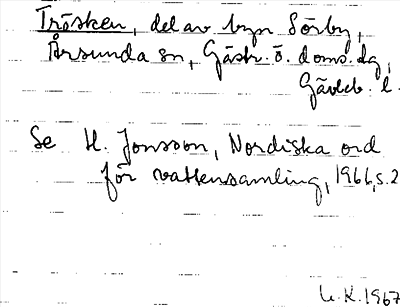 Trösken, del av byn Sörby,
Årsunda sn, Gästr. ö. doms. dg,
Gävleb. l.
Se H. Jonsson, Nordiska ord
för vattensamling, 1966, s. 2
U.K. 1967